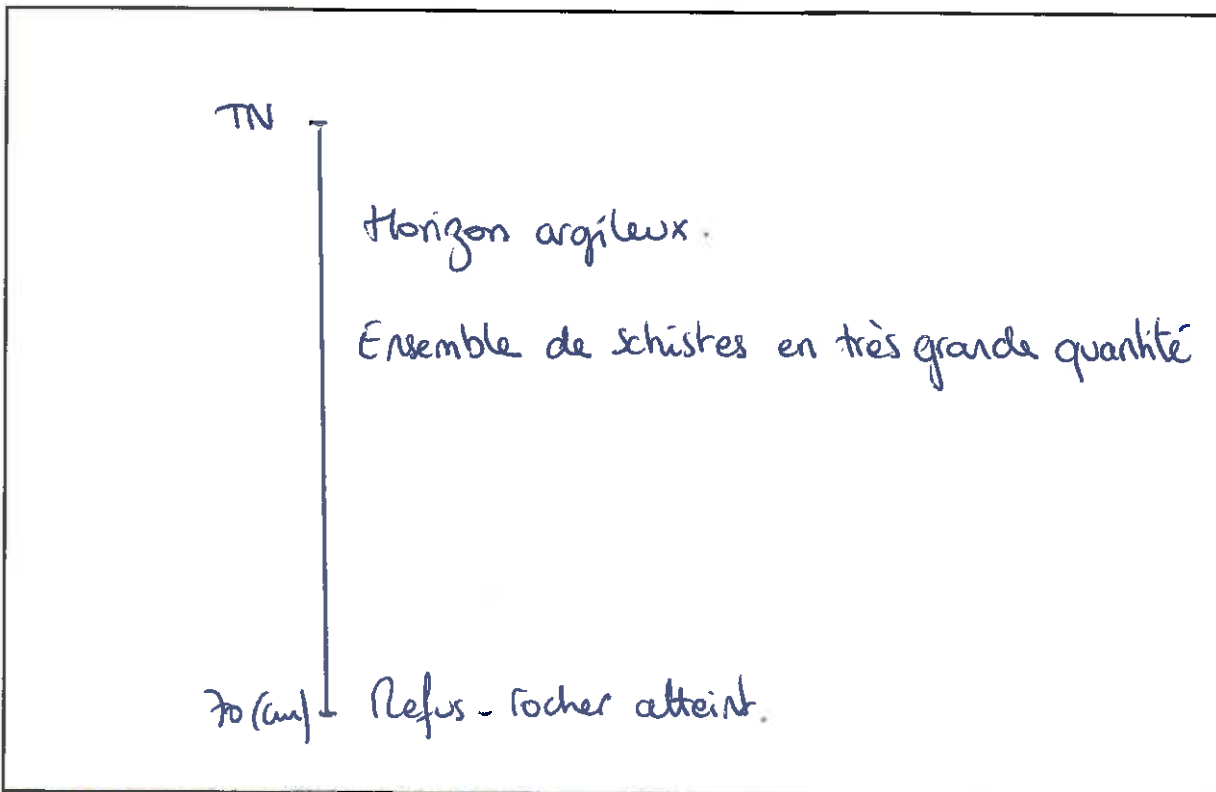 TN
Horizon argileux.
Ensemble de schistes en très grande quantité
70 (cm) Refus - rocher atteint.